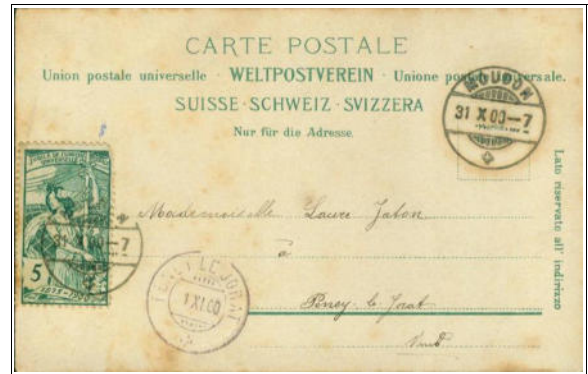 CARTE POSTALE
Union postale universelle · WELTPOSTVEREIN · Unione postale universale.
SUISSE · SCHWEIZ · SVIZZERA
Nur für die Adresse.
MOUDON
31 X 00–7
Lato riservato all' indirizzo
5
1875-1900
31 X 00–7
Mademoiselle Laure Jaton
à
PENEY LE JORAT
1 XI 00
Peney le Jorat
Vaud